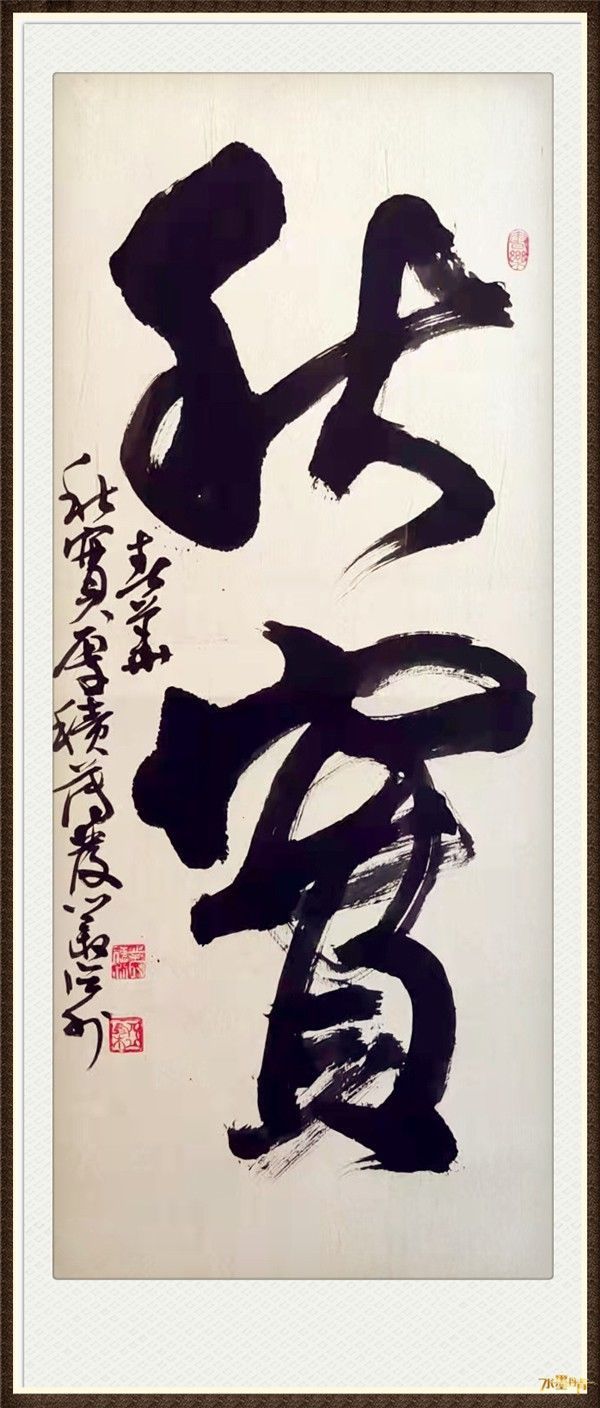 秋實
春華
秋實厚積薄發
水墨丹青